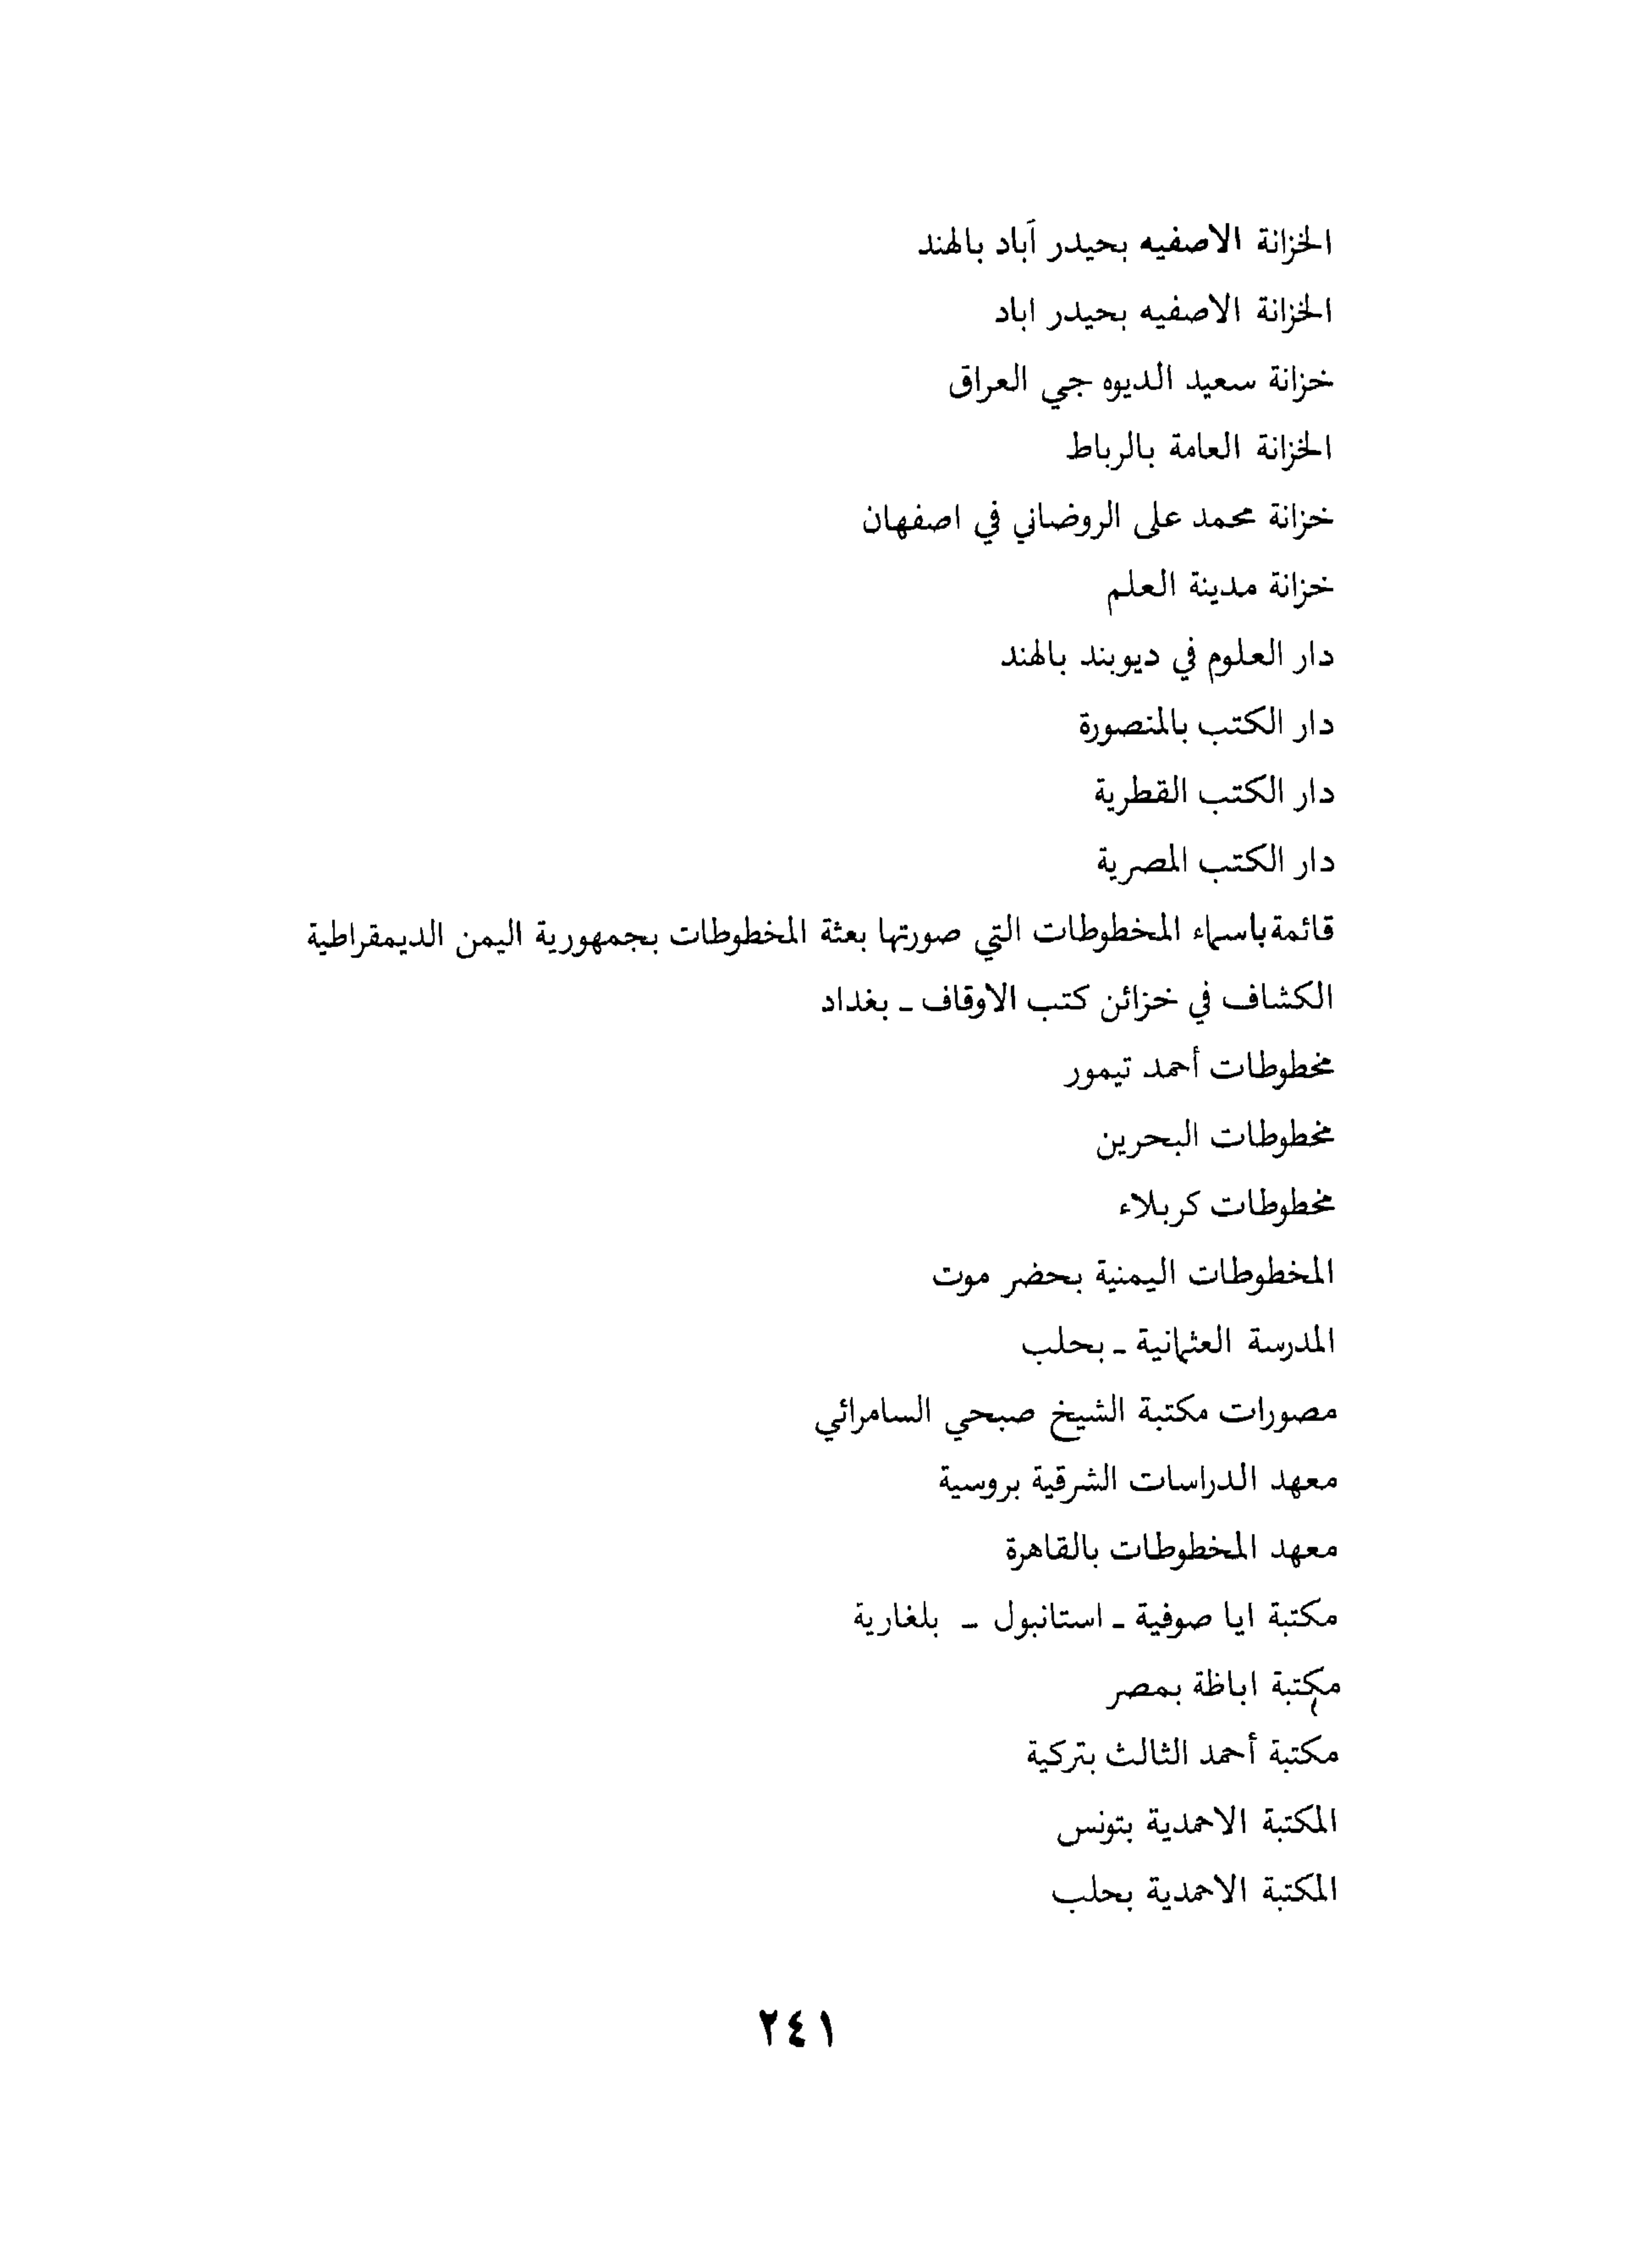 الخزانة الاصفيه بحيدر آباد بالهند
الخزانة الاصفيه بحيدر اباد
خزانة سعيد الديوه جي العراق
الخزانة العامة بالرباط
خزانة محمد على الروضاني في اصفهان
خزانة مدينة العلم
دار العلوم في ديوبند بالهند
دار الكتب بالمنصورة
دار الكتب القطرية
دار الكتب المصرية
قائمة باسماء المخطوطات التي صورتها بعثة المخطوطات بجمهورية اليمن الديمقراطية
الكشاف في خزائن كتب الاوقاف - بغداد
مخطوطات أحمد تيمور
مخطوطات البحرين
مخطوطات كربلاء
المخطوطات اليمنية بحضر موت
المدرسة العثمانية - بحلب
مصورات مكتبة الشيخ صبحي السامرائي
معهد الدراسات الشرقية بروسية
معهد المخطوطات بالقاهرة
مكتبة ايا صوفية - استانبول - بلغارية
مكتبة اباظة بمصر
مكتبة أحمد الثالث بتركية
المكتبة الاحمدية بتونس
المكتبة الاحمدية بحلب
٢٤١